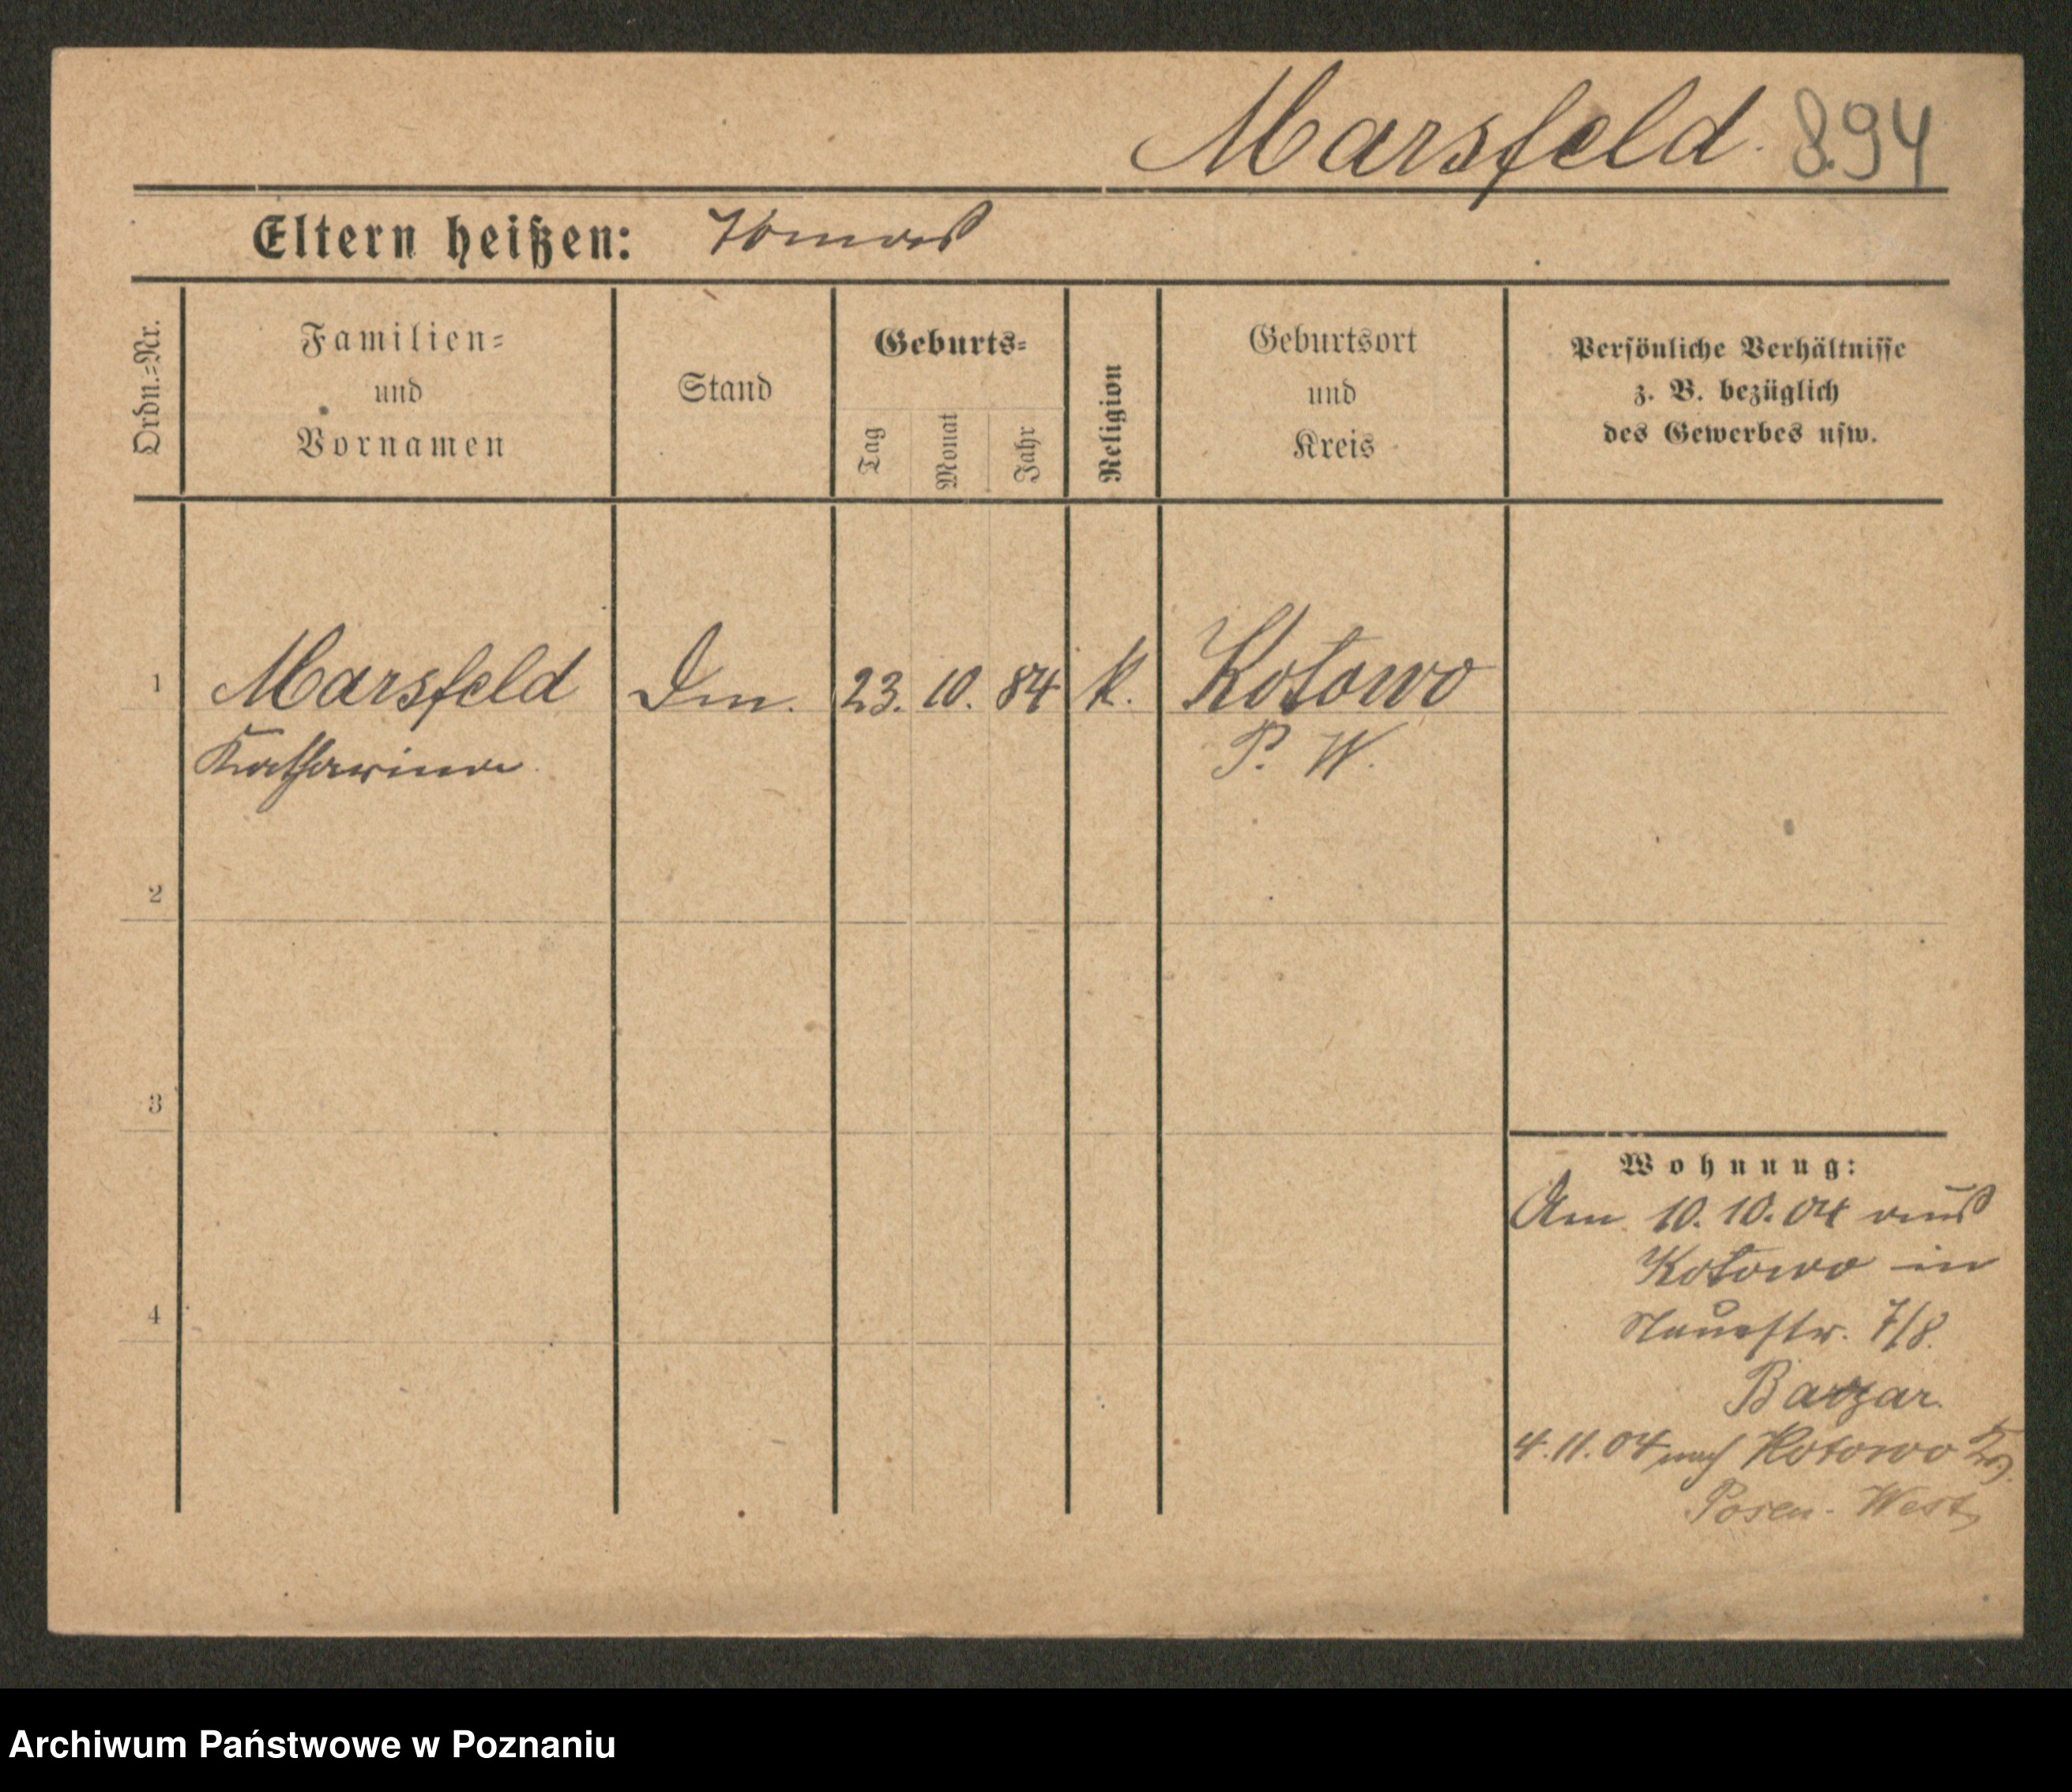 Marsfeld. 894
Eltern heißen: Thomas
Ordn.-Nr.
Familien-
und
Vornamen
Stand
Geburts-
Tag
Monat
Jahr
Religion
Geburtsort
und
Kreis
Persönliche Verhältnisse
z. B. bezüglich
des Gewerbes usw.
1 Marsfeld 23. 10. 84 k. Kotowo
Katharina P. W.
2
3
4
Wohnung:
Am 10. 10. 04 aus
Kotowo in
Neuestr. 7/8.
Bazar.
4. 11. 04 nach Kotowo
Posen-West
Archiwum Państwowe w Poznaniu